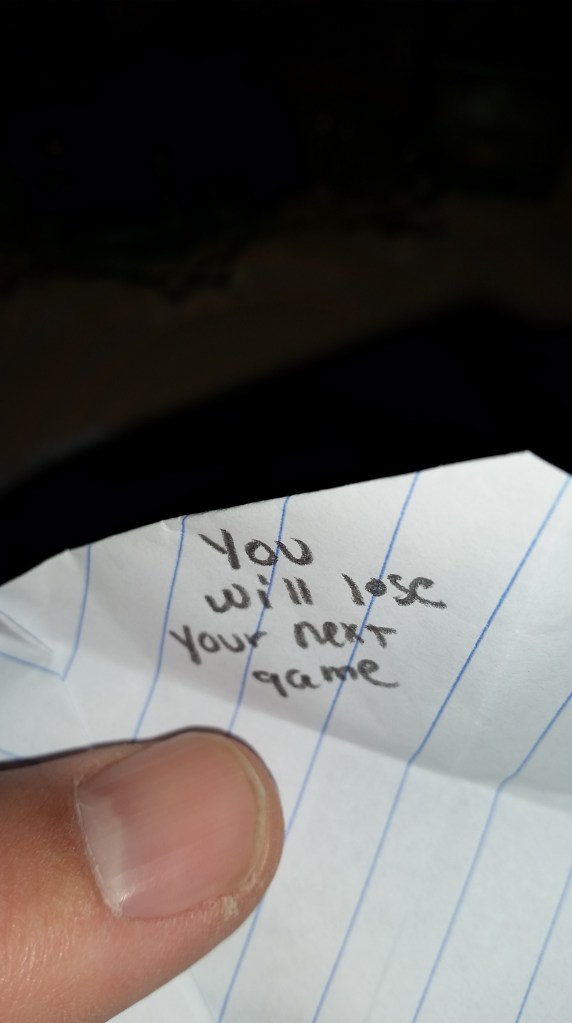 You
will lose
your next
game